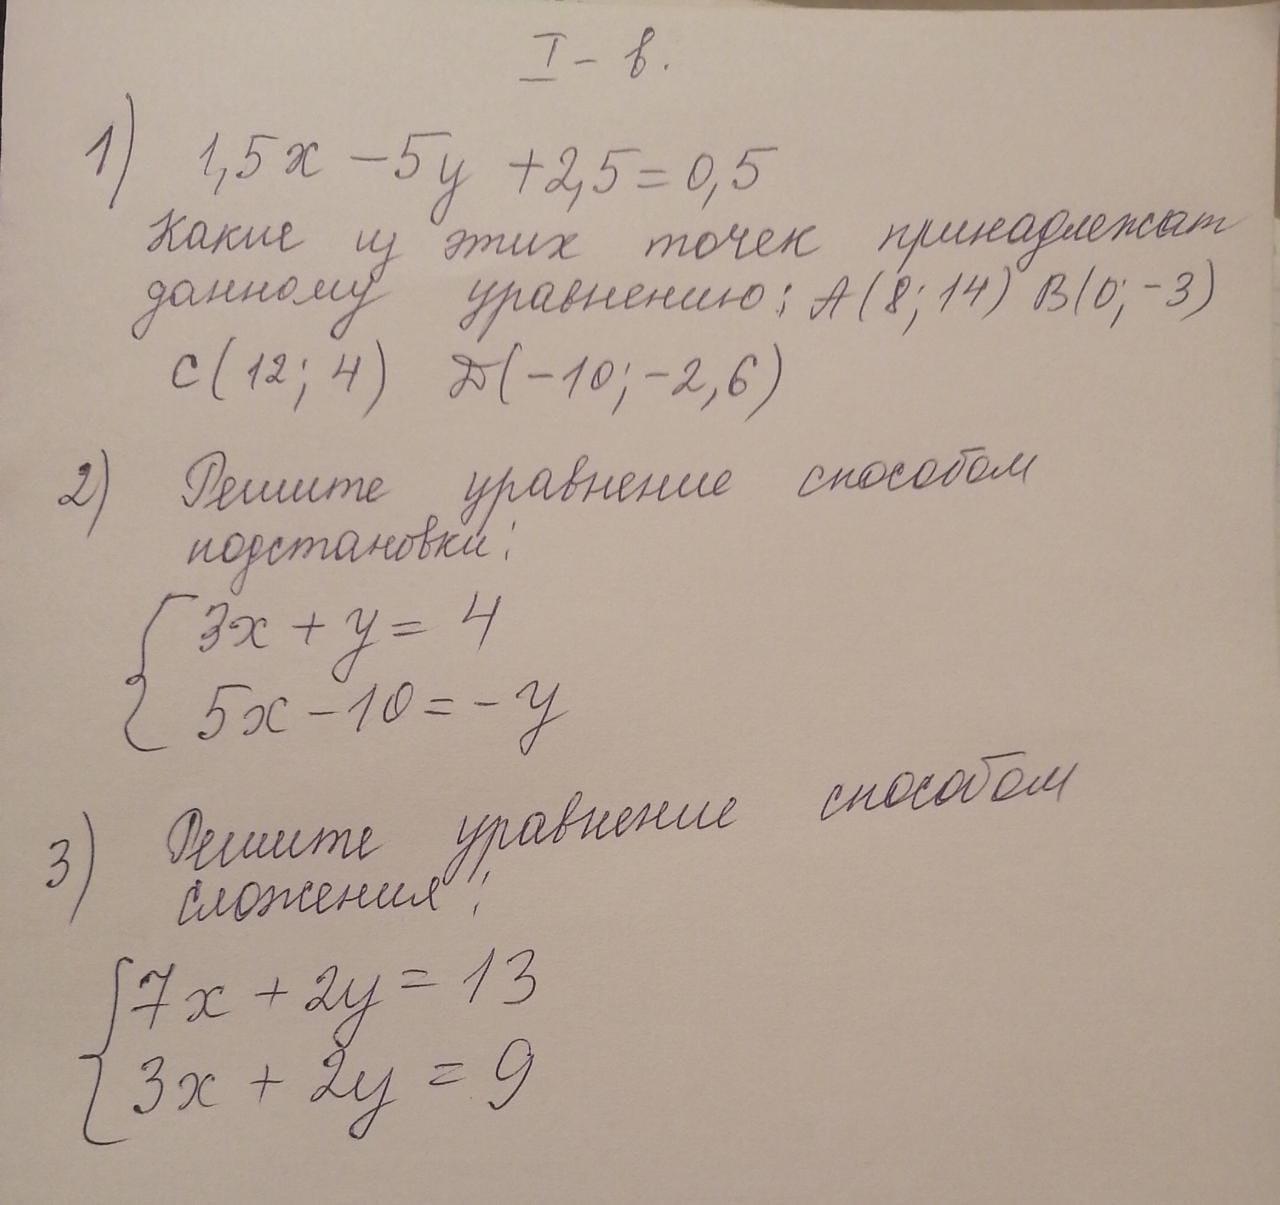 I - в.
1) 1,5x - 5y + 2,5 = 0,5
Какие из этих точек принадлежат
данному уравнению: А(8; 14) В(0; -3)
С(12; 4) Д(-10; -2,6)
2) Решите уравнение способом
подстановки:
3x + y = 4
5x - 10 = -y
3) Решите уравнение способом
сложения:
7x + 2y = 13
3x + 2y = 9